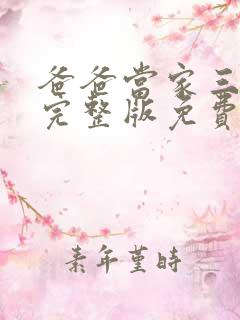 爸爸當家三
完整版免費
素年堇時